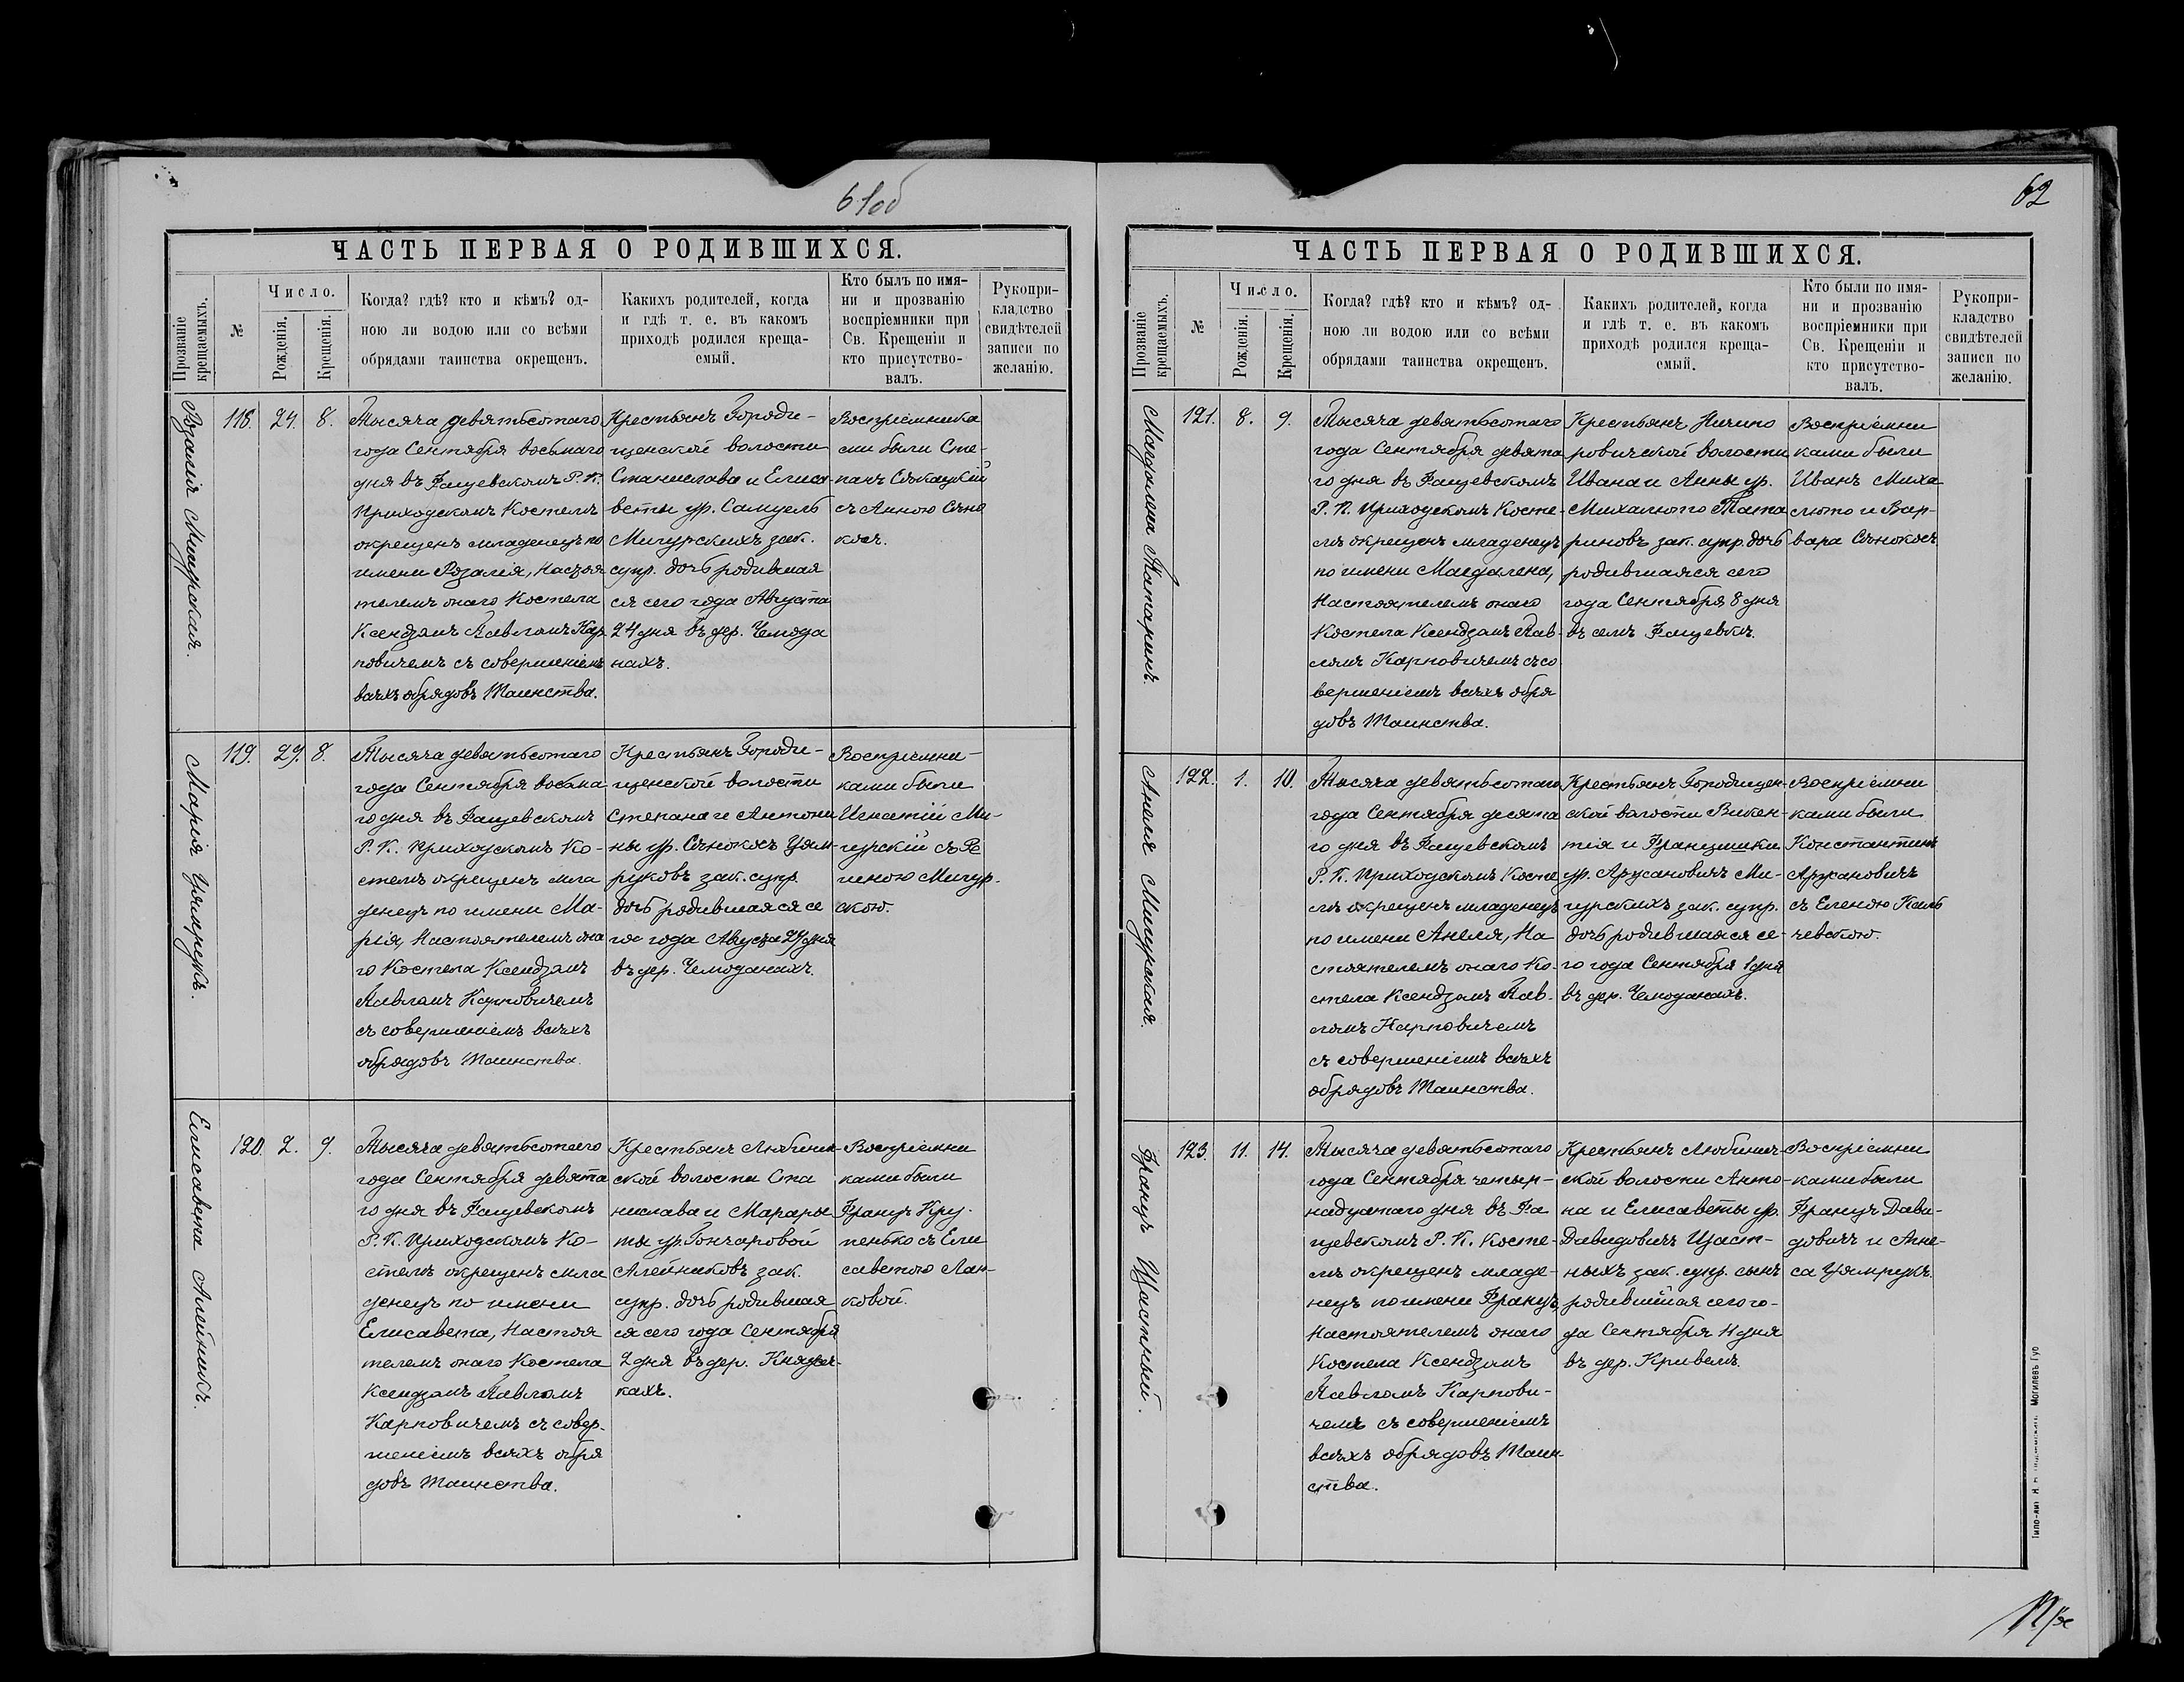 61об
ЧАСТЬ ПЕРВАЯ О РОДИВШИХСЯ.
Прозваніе крещаемыхъ.
№
Число.
Рожденія.
Крещенія.
Когда? гдѣ? кто и кѣмъ? од-
ною ли водою или со всѣми
обрядами таинства окрещенъ.
Какихъ родителей, когда
и гдѣ т. е. въ какомъ
приходѣ родился креща-
емый.
Кто былъ по имя-
ни и прозванію
воспріемники при
Св. Крещеніи и
кто присутство-
валъ.
Рукопри-
кладство
свидѣтелей
записи по
желанію.
Розалія Мигурская.
118. 24. 8.
Тысяча девятьсотаго
года Сентября восьмаго
дня въ Фащевскомъ Р. К.
Приходскомъ Костелѣ
окрещенъ младенецъ по
имени Розалія, Настоя
телемъ онаго Костела
Ксендзомъ Павломъ Кар
повичемъ съ совершеніемъ
всѣхъ обрядовъ Таинства.
Крестьянъ Городи-
щенской волости
Станислава и Елиса-
веты ур. Самуель
Мигурскихъ зак.
супр. дочь родившая
ся сего года Августа
24 дня въ дер. Чемода
нахъ.
Воспріемника
ми были Сте-
панъ
съ Анною Сѣно
косъ.
Марія Цямрукъ.
119. 27. 8.
Тысяча девятьсотаго
года Сентября восьма
го дня въ Фащевскомъ
Р. К. Приходскомъ Ко-
стелѣ окрещенъ мла
денецъ по имени Ма-
рія, Настоятелемъ она
го Костела Ксендзомъ
Павломъ Карповичемъ
съ совершеніемъ всѣхъ
обрядовъ Таинства.
Крестьянъ Городи-
щенской волости
Степана и Антони
ны ур. Сѣнокосъ Цям-
руковъ зак. супр.
дочь родившаяся се
го года Августа 27 дня
въ дер. Чемоданахъ.
Воспріемни-
ками были
Игнатій Ми-
гурскій съ Ре
гиною Мигур-
скою.
Елисавета Алейникъ.
120. 2. 9.
Тысяча девятьсотаго
года Сентября девята
го дня въ Фащевскомъ
Р. К. Приходскомъ Ко-
стелѣ окрещенъ мла
денецъ по имени
Елисавета, Настоя
телемъ онаго Костела
Ксендзомъ Павломъ
Карповичемъ съ совер-
шеніемъ всѣхъ обря
довъ Таинства.
Крестьянъ Любинич-
ской волости Ста
нислава и Маргары
ты ур. Гончаровой
Алейниковъ зак.
супр. дочь родившая
ся сего года Сентября
2 дня въ дер.
кахъ.
Воспріемни
ками были
Францъ Кру-
пенько съ Ели
саветою Лан-
ковой.
62
ЧАСТЬ ПЕРВАЯ О РОДИВШИХСЯ.
Прозваніе крещаемыхъ.
№
Число.
Рожденія.
Крещенія.
Когда? гдѣ? кто и кѣмъ? од-
ною ли водою или со всѣми
обрядами таинства окрещенъ.
Какихъ родителей, когда
и гдѣ т. е. въ какомъ
приходѣ родился креща-
емый.
Кто были по имя-
ни и прозванію
воспріемники при
Св. Крещеніи и
кто присутство-
валъ.
Рукопри-
кладство
свидѣтелей
записи по
желанію.
Магдалена Татаринъ.
121. 8. 9.
Тысяча девятьсотаго
года Сентября девята
го дня въ Фащевскомъ
Р. К. Приходскомъ Косте-
лѣ окрещенъ младенецъ
по имени Магдалена,
Настоятелемъ онаго
Костела Ксендзомъ Пав-
ломъ Карповичемъ съ со
вершеніемъ всѣхъ обря
довъ Таинства.
Крестьянъ Ничипо
ровичской волости
Ивана и Анны ур.
Михалюто Тата
риновъ зак. супр. дочь
родившаяся сего
года Сентября 8 дня
въ селѣ Фащевкѣ.
Воспріемни
ками были
Иванъ Миха
люто и Вар-
вара Сѣнокосъ.
Анеля Мигурская.
122. 1. 10.
Тысяча девятьсотаго
года Сентября десята
го дня въ Фащевскомъ
Р. К. Приходскомъ Косте
лѣ окрещенъ младенецъ
по имени Анеля, На
стоятелемъ онаго Ко-
стела Ксендзомъ Пав-
ломъ Карповичемъ
съ совершеніемъ всѣхъ
обрядовъ Таинства.
Крестьянъ Городищен-
ской волости Викен-
тія и Францишки
ур. Арусановичъ Ми-
гурскихъ зак. супр.
дочь родившаяся се-
го года Сентября 1 дня
въ дер. Чемоданахъ.
Воспріемни
ками были
Константинъ
Арусановичъ
съ Еленою
чевскою.
Францъ Щастный.
123. 11. 14.
Тысяча девятьсотаго
года Сентября четыр-
надцатаго дня въ Фа
щевскомъ Р. К. Косте-
лѣ окрещенъ младе-
нецъ по имени Францъ,
Настоятелемъ онаго
Костела Ксендзомъ
Павломъ Карпови-
чемъ съ совершеніемъ
всѣхъ обрядовъ Таин-
ства.
Крестьянъ Любинич-
ской волости Анто-
на и Елисаветы ур.
Давидовичъ Щаст-
ныхъ зак. супр. сынъ
родившійся сего го-
да Сентября 11 дня
въ дер. Кривель.
Воспріемни
ками были
Францъ Дави-
довичъ и Агне-
са Цямрукъ.
Могилевъ Губ